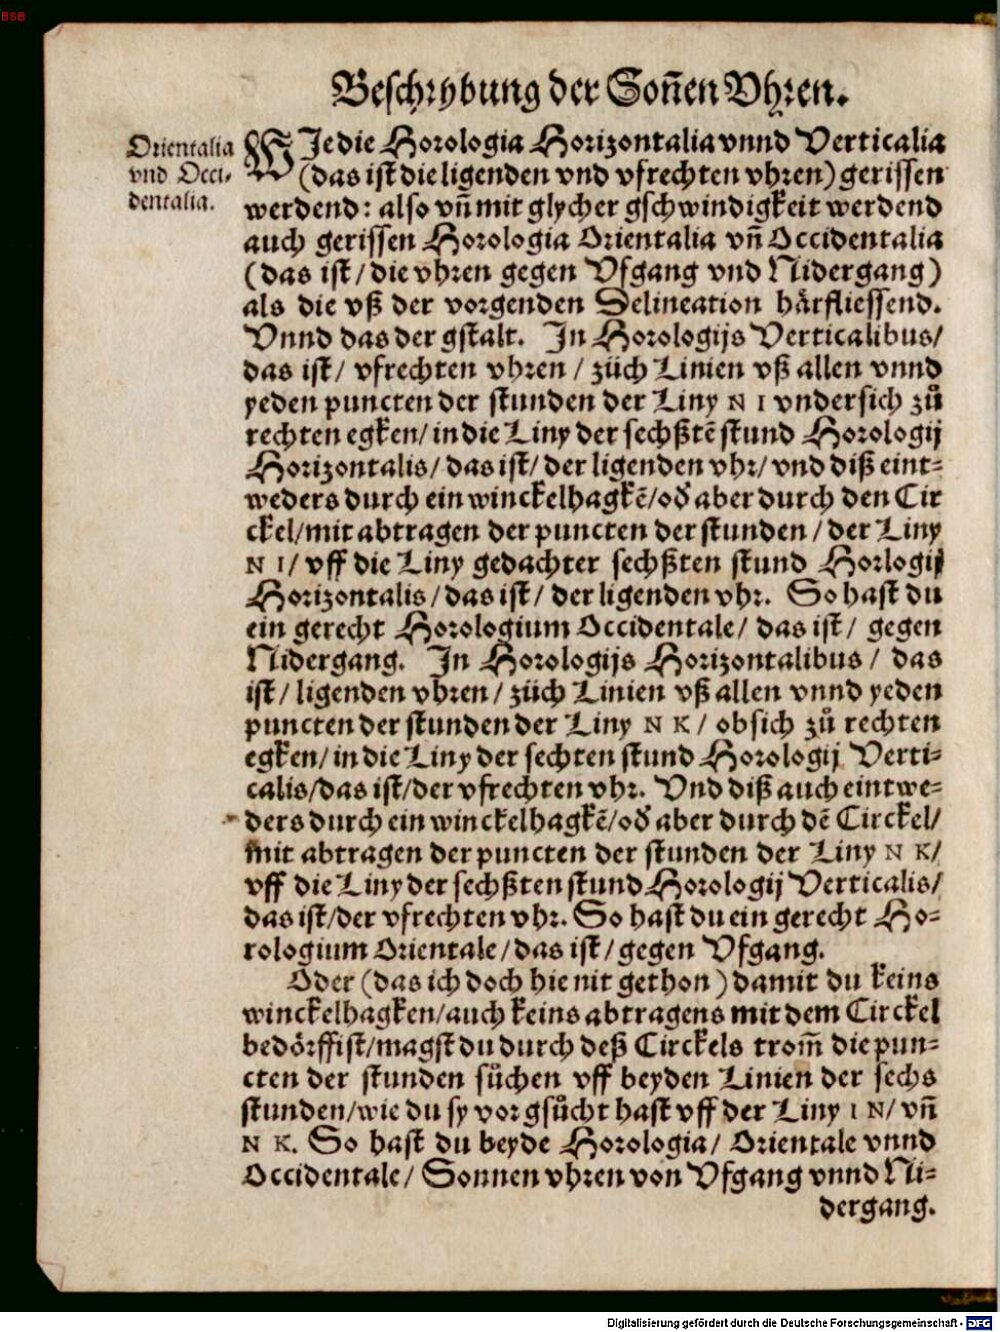 BSB
Beschrybung der Soñen Vhren.
Orientalia
vnd Occi-
dentalia.
WJe die Horologia Horizontalia vnnd Verticalia
(das ist die ligenden vnd vfrechten vhren) gerissen
werdend: also vñ mit glycher gschwindigkeit werdend
auch gerissen Horologia Orientalia vñ Occidentalia
(das ist/ die vhren gegen Vfgang vnd Nidergang)
als die vß der vorgenden Delineation härfliessend.
Vnnd das der gstalt. Jn Horologijs Verticalibus/
das ist/ vfrechten vhren / züch Linien vß allen vnnd
yeden puncten der stunden der Liny N I vndersich zů
rechten egken/ in die Liny der sechßtẽ stund Horologij
Horizontalis/ das ist/ der ligenden vhr/ vnd diß eint-
weders durch ein winckelhagkẽ/od aber durch den Cir
ckel/mit abtragen der puncten der stunden / der Liny
N I/ vff die Liny gedachter sechßten stund Horlogij
Horizontalis/das ist/ der ligenden vhr. So hast du
ein gerecht Horologium Occidentale/ das ist/ gegen
Nidergang. Jn Horologijs Horizontalibus / das
ist/ ligenden vhren/ züch Linien vß allen vnnd yeden
puncten der stunden der Liny N K/ obsich zů rechten
egken/ in die Liny der sechten stund Horologij Verti-
calis/das ist/der vfrechten vhr. Vnd diß auch eintwe-
ders durch ein winckelhagkẽ/od aber durch dẽ Circkel/
mit abtragen der puncten der stunden der Liny N K/
vff die Liny der sechßten stund Horologij Verticalis/
das ist/der vfrechten vhr. So hast du ein gerecht Ho-
rologium Orientale/das ist/gegen Vfgang.
Oder (das ich doch hie nit gethon) damit du keins
winckelhagken/auch keins abtragens mit dem Circkel
bedörffist/magst du durch deß Circkels trom̃ die pun-
cten der stunden sůchen vff beyden Linien der sechs
stunden/wie du sy vor gsůcht hast vff der Liny I N/ vñ
N K. So hast du beyde Horologia/ Orientale vnnd
Occidentale/ Sonnen vhren von Vfgang vnnd Ni-
dergang.
Digitalisierung gefördert durch die Deutsche Forschungsgemeinschaft - DFG